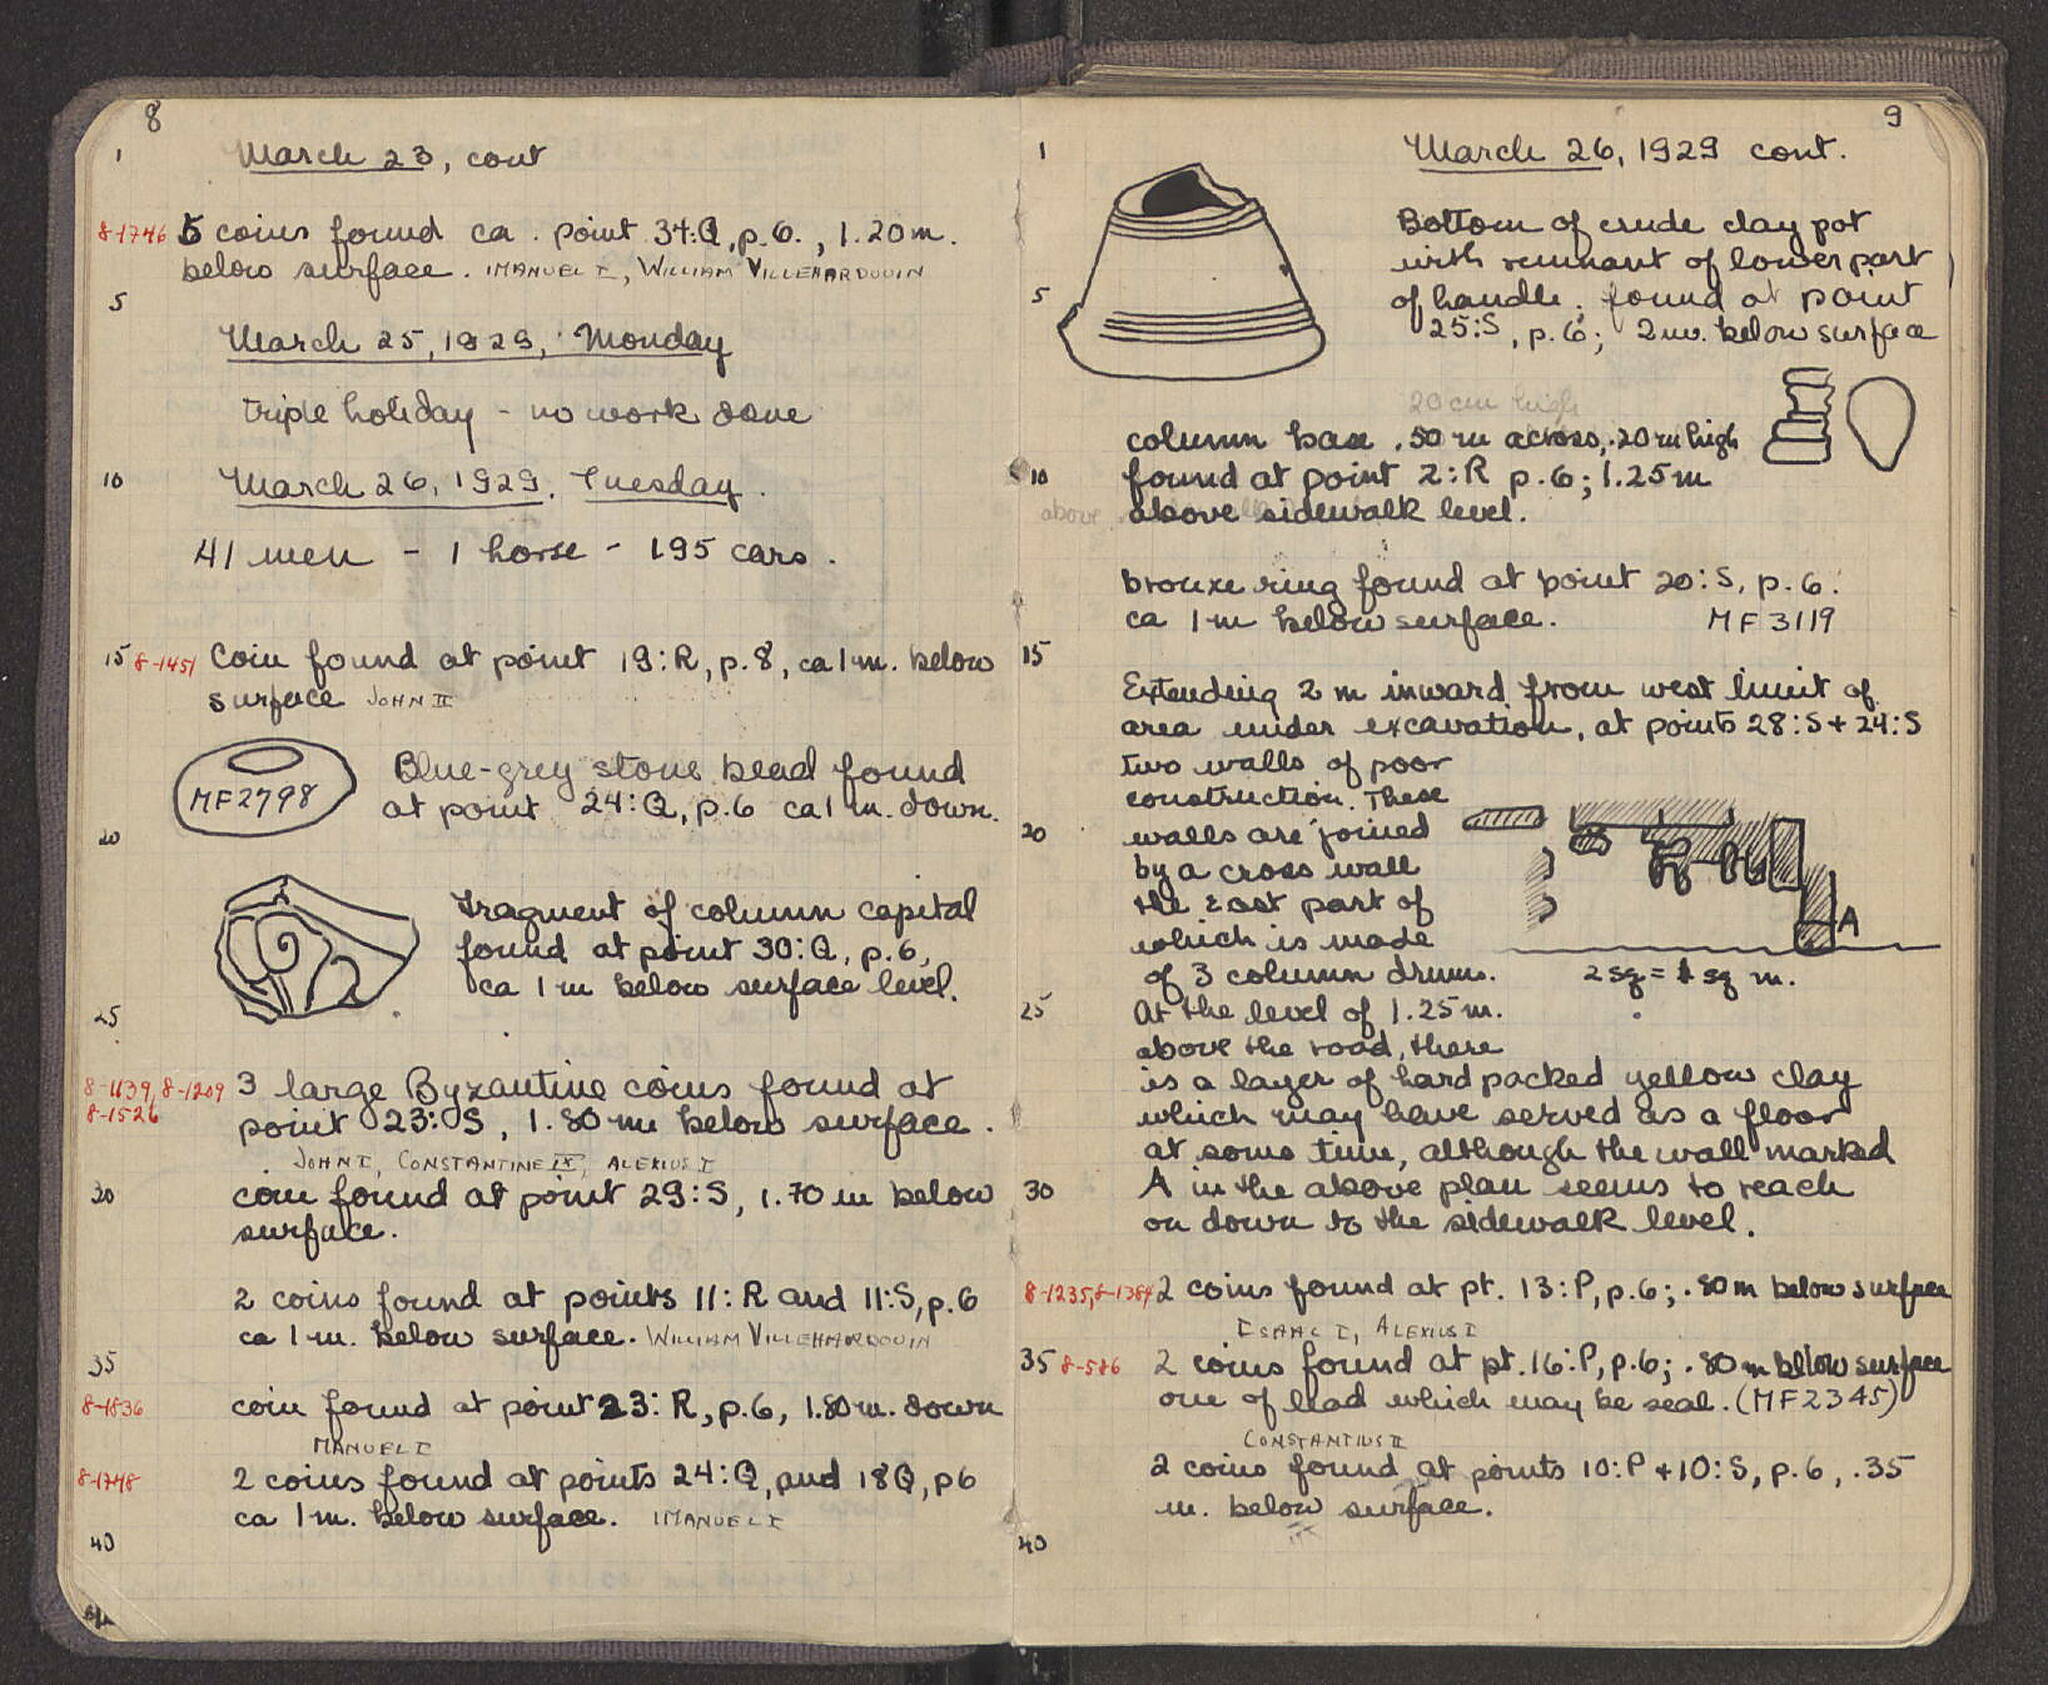 8
1 March 23, cont
8-1746 5 coins found ca. point 34:Q, p.6., 1.20 m.
below surface. 1MANUEL I, WILLIAM VILLEHARDOUIN
5
March 25, 1929, Monday
triple holiday - no work done
10 March 26, 1929. Tuesday.
41 men - 1 horse - 195 cars.
15 8-1451 Coin found at point 19:R, p.8, ca 1 m. below
surface JOHN II
MF2798
Blue-grey stone bead found
at point 24:Q, p.6 ca 1 m. down.
20
Fragment of column capital
found at point 30:Q, p.6,
ca 1 m below surface level.
25
8-1139, 8-1209 3 large Byzantine coins found at
8-1526 point 23:S, 1.80 m below surface.
JOHN I, CONSTANTINE IX, ALEXIUS I
30 coin found at point 29:S, 1.70 m below
surface.
2 coins found at points 11:R and 11:S, p.6
ca 1 m. below surface. WILLIAM VILLEHARDOUIN
35
8-1836 coin found at point 23:R, p.6, 1.80 m. down
MANUEL I
8-1748 2 coins found at points 24:Q, and 18Q, p6
ca 1 m. below surface. 1MANUEL I
40
9
1 March 26, 1929 cont.
Bottom of crude clay pot
with remnant of lower part
5 of handle; found at point
25:S, p.6; 2 m. below surface
20 cm high
column base .50 m across, .20 m high
10 found at point 2:R p.6; 1.25 m
above above sidewalk level.
bronze ring found at point 20:S, p.6.
ca 1 m below surface. MF 3119
15
Extending 2 m inward from west limit of
area under excavation, at points 28:S + 24:S
two walls of poor
construction. These
20 walls are joined
by a cross wall
the East part of
which is made
A
of 3 column drums.
2 sq = 1 sq m.
25 At the level of 1.25 m.
above the road, there
is a layer of hard packed yellow clay
which may have served as a floor
at some time, although the wall marked
30 A in the above plan seems to reach
on down to the sidewalk level.
8-1235, 8-1384 2 coins found at pt. 13:P, p.6; .80 m below surface
ISAAC I, ALEXIUS I
35 8-586 2 coins found at pt. 16:P, p.6; .80 m below surface
one of lead which may be seal. (MF2345)
CONSTANTIUS II
2 coins found at points 10:P + 10:S, p.6, .35
m. below surface.
40